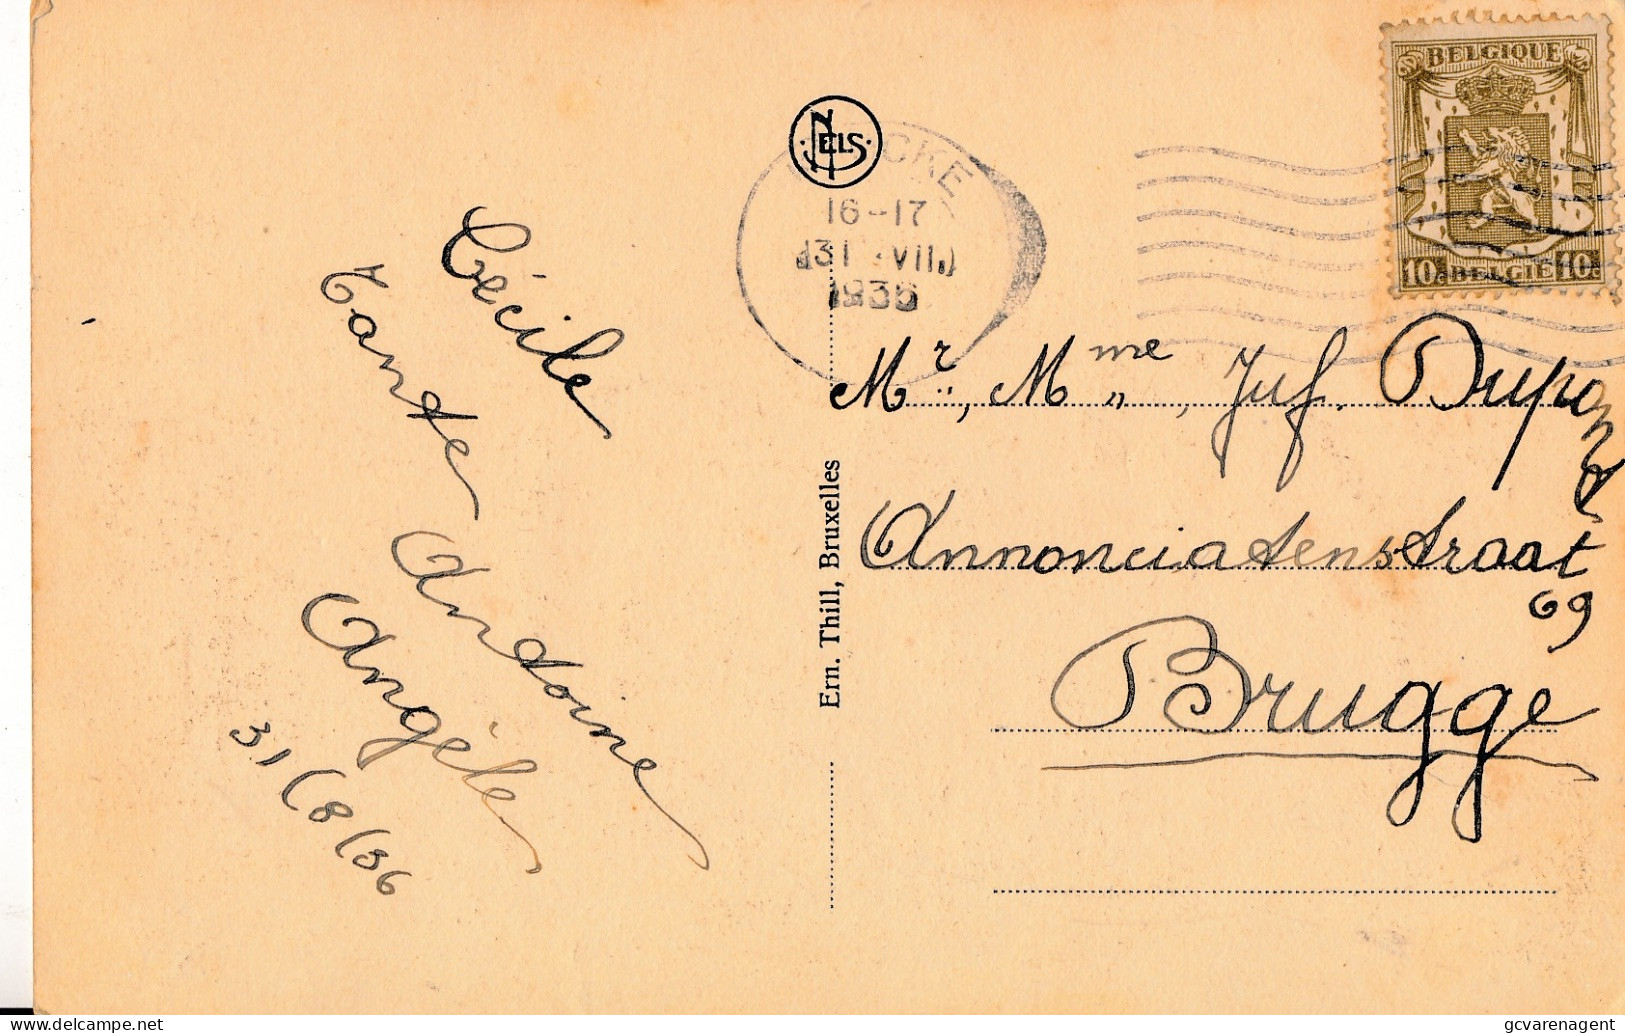 BELGIQUE
10c BELGIE 10c
NELS
CKE
16-17
31 VIII
1936
Mr., Mme, Juf. Dupont
Annonciatenstraat
69
Brugge
Ern. Thill, Bruxelles
Cécile
Tante Antoine
Angèle
31/8/36
gcvarenagent